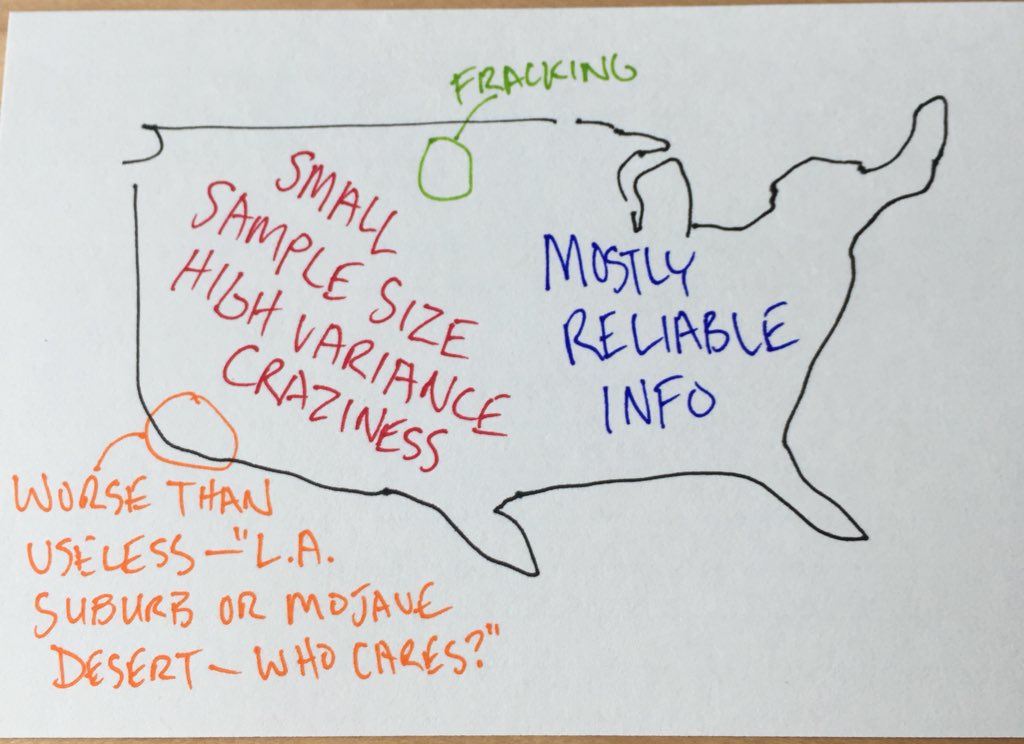 FRACKING
SMALL
SAMPLE SIZE
HIGH VARIANCE
CRAZINESS
MOSTLY
RELIABLE
INFO
WORSE THAN
USELESS — "L.A.
SUBURB OR MOJAVE
DESERT — WHO CARES?"